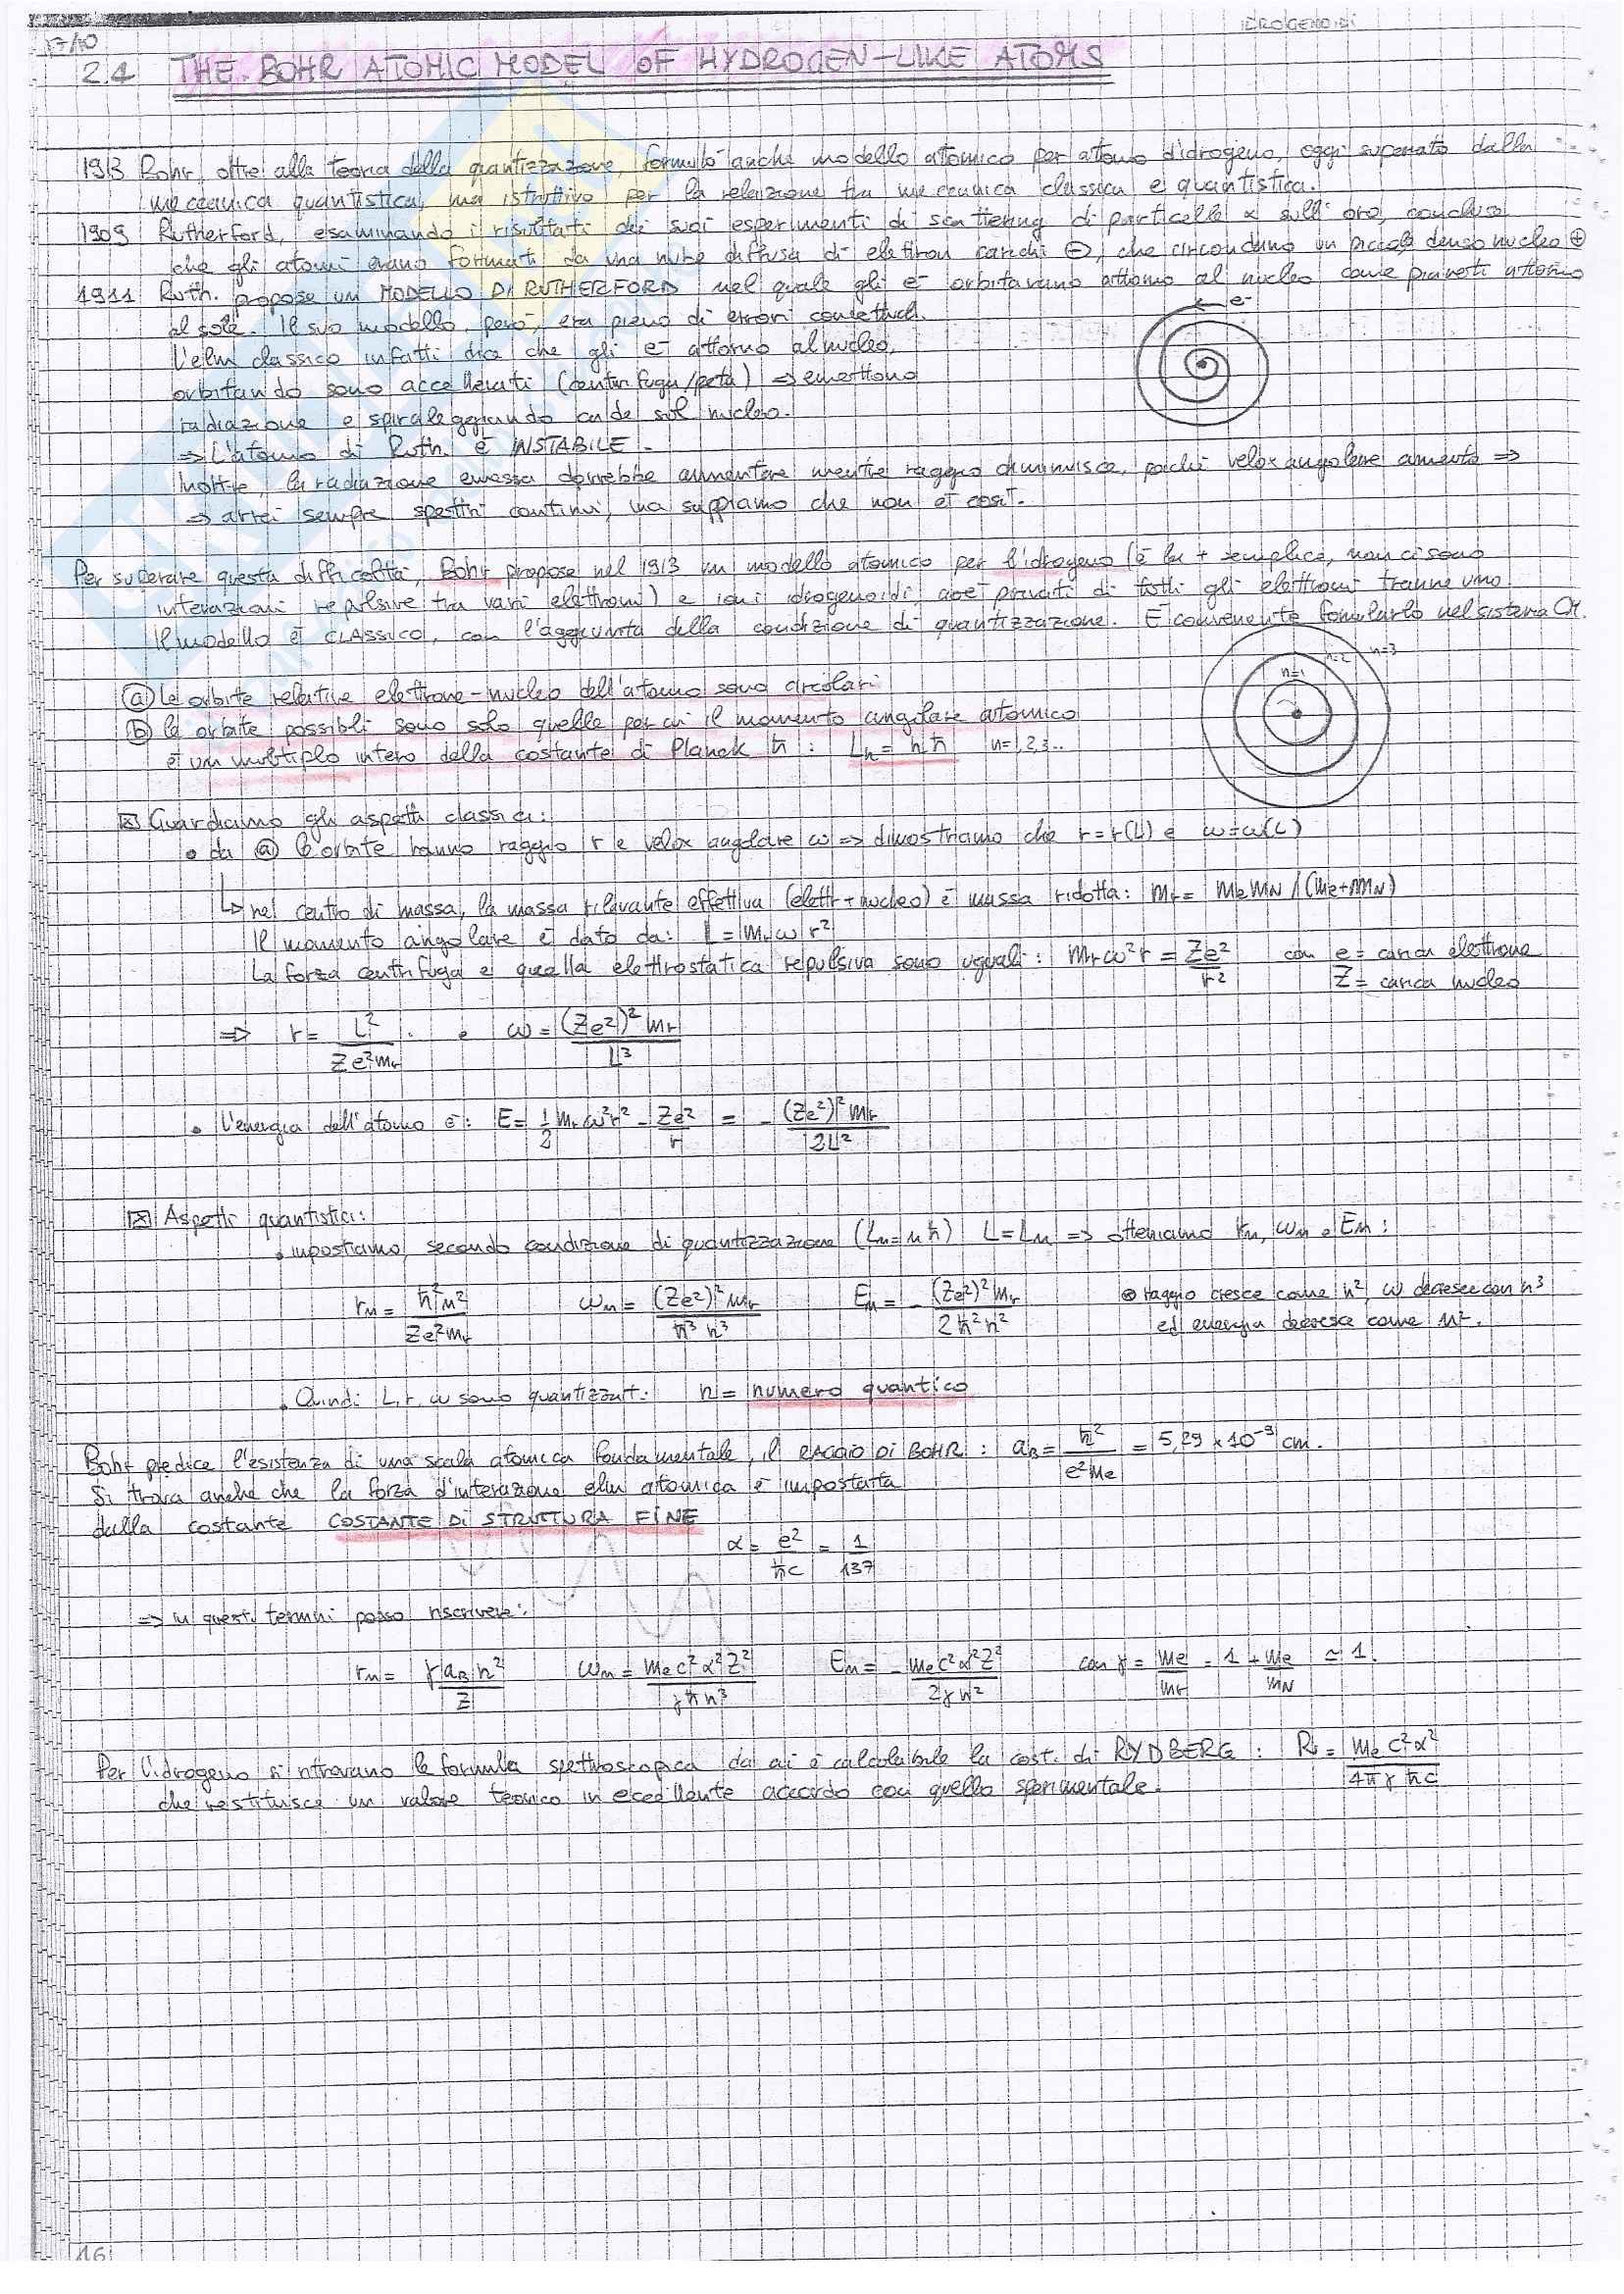 IDROGENOIDI
17/10
2.1 THE BOHR ATOMIC MODEL OF HYDROGEN-LIKE ATOMS
1913 Bohr, oltre alla teoria della quantizzazione, formulò anche modello atomico per atomo d'idrogeno, oggi superato dalla
meccanica quantistica, ma istruttivo per la relazione tra meccanica classica e quantistica.
1909 Rutherford, esaminando i risultati dei suoi esperimenti di scattering di particelle α sull'oro, concluse
che gli atomi erano formati da una nube diffusa di elettroni carichi ⊖, che circondano un piccolo denso nucleo ⊕
1911 Ruth. propose un MODELLO DI RUTHERFORD nel quale gli e⁻ orbitavano attorno al nucleo come pianeti attorno
al sole. Il suo modello, però, era pieno di errori concettuali.
e⁻
L'elm classico infatti dice che gli e⁻ attorno al nucleo,
orbitando sono accellerati (centrifuga/peta) => emettono
radiazione e spiraleggiando cade sul nucleo.
=> L'atomo di Ruth. è INSTABILE.
Inoltre, la radiazione emessa dovrebbe aumentare mentre raggio diminuisce, poiché velox angolare aumenta =>
=> avrei sempre spettri continui, ma sappiamo che non è così.
Per superare questa difficoltà, Bohr propose nel 1913 un modello atomico per l'idrogeno (è lu + semplice, non ci sono
interazioni repulsive tra vari elettroni) e ioni idrogenoidi, cioè privati di tutti gli elettroni tranne uno.
Il modello è CLASSICO, con l'aggiunta della condizione di quantizzazione. È conveniente formularlo nel sistema CM.
n=1 n=2 n=3
ⓐ Le orbite relative elettrone-nucleo dell'atomo sono circolari
ⓑ le orbite possibili sono solo quelle per cui il momento angolare atomico
è un multiplo intero della costante di Planck ħ: Lₙ = nħ n=1,2,3..
⊠ Guardiamo gli aspetti classici:
• da ⓐ le orbite hanno raggio r e velox angolare ω => dimostriamo che r=r(L) e ω=ω(L)
↳ nel centro di massa, la massa rilevante effettiva (elettr+nucleo) è massa ridotta: mᵣ = mₑm_N/(mₑ+m_N)
Il momento angolare è dato da: L=mᵣωr²
La forza centrifuga e quella elettrostatica repulsiva sono uguali: mᵣω²r = Ze²/r² con e= carica elettrone
Z= carica nucleo
=> r = L²/Ze²mᵣ . e ω = (Ze²)²mᵣ/L³
• L'energia dell'atomo è: E = 1/2 mᵣω²r² - Ze²/r = - (Ze²)²mᵣ/2L²
⊠ Aspetti quantistici:
• impostiamo, secondo condizione di quantizzazione (Lₙ=nħ) L=Lₙ => otteniamo rₙ, ωₙ e Eₙ:
rₙ = ħ²n²/Ze²mᵣ ωₙ = (Ze²)²mᵣ/ħ³n³ Eₙ = - (Ze²)²mᵣ/2ħ²n² ⊙ raggio cresce come n², ω decresce con n³
ed energia decresce come n².
• Quindi L, r, ω sono quantizzati: n = numero quantico
Bohr predice l'esistenza di una scala atomica fondamentale, il RAGGIO DI BOHR: a_B = ħ²/e²mₑ = 5,29 × 10⁻⁹ cm.
Si trova anche che la forza d'interazione elm atomica è impostata
dalla costante COSTANTE DI STRUTTURA FINE
α = e²/ħc = 1/137
=> in questi termini posso riscrivere:
rₙ = γ a_B n²/Z ωₙ = mₑc²α²Z²/γħn³ Eₙ = - mₑc²α²Z²/2γn² con γ = mₑ/mᵣ = 1 + mₑ/m_N ≃ 1.
Per l'idrogeno si ritrovano le formula spettroscopica da cui è calcolabile la cost. di RYDBERG: R = mₑc²α²/4πγħc
che restituisce un valore teorico in eccellente accordo con quello sperimentale.
16